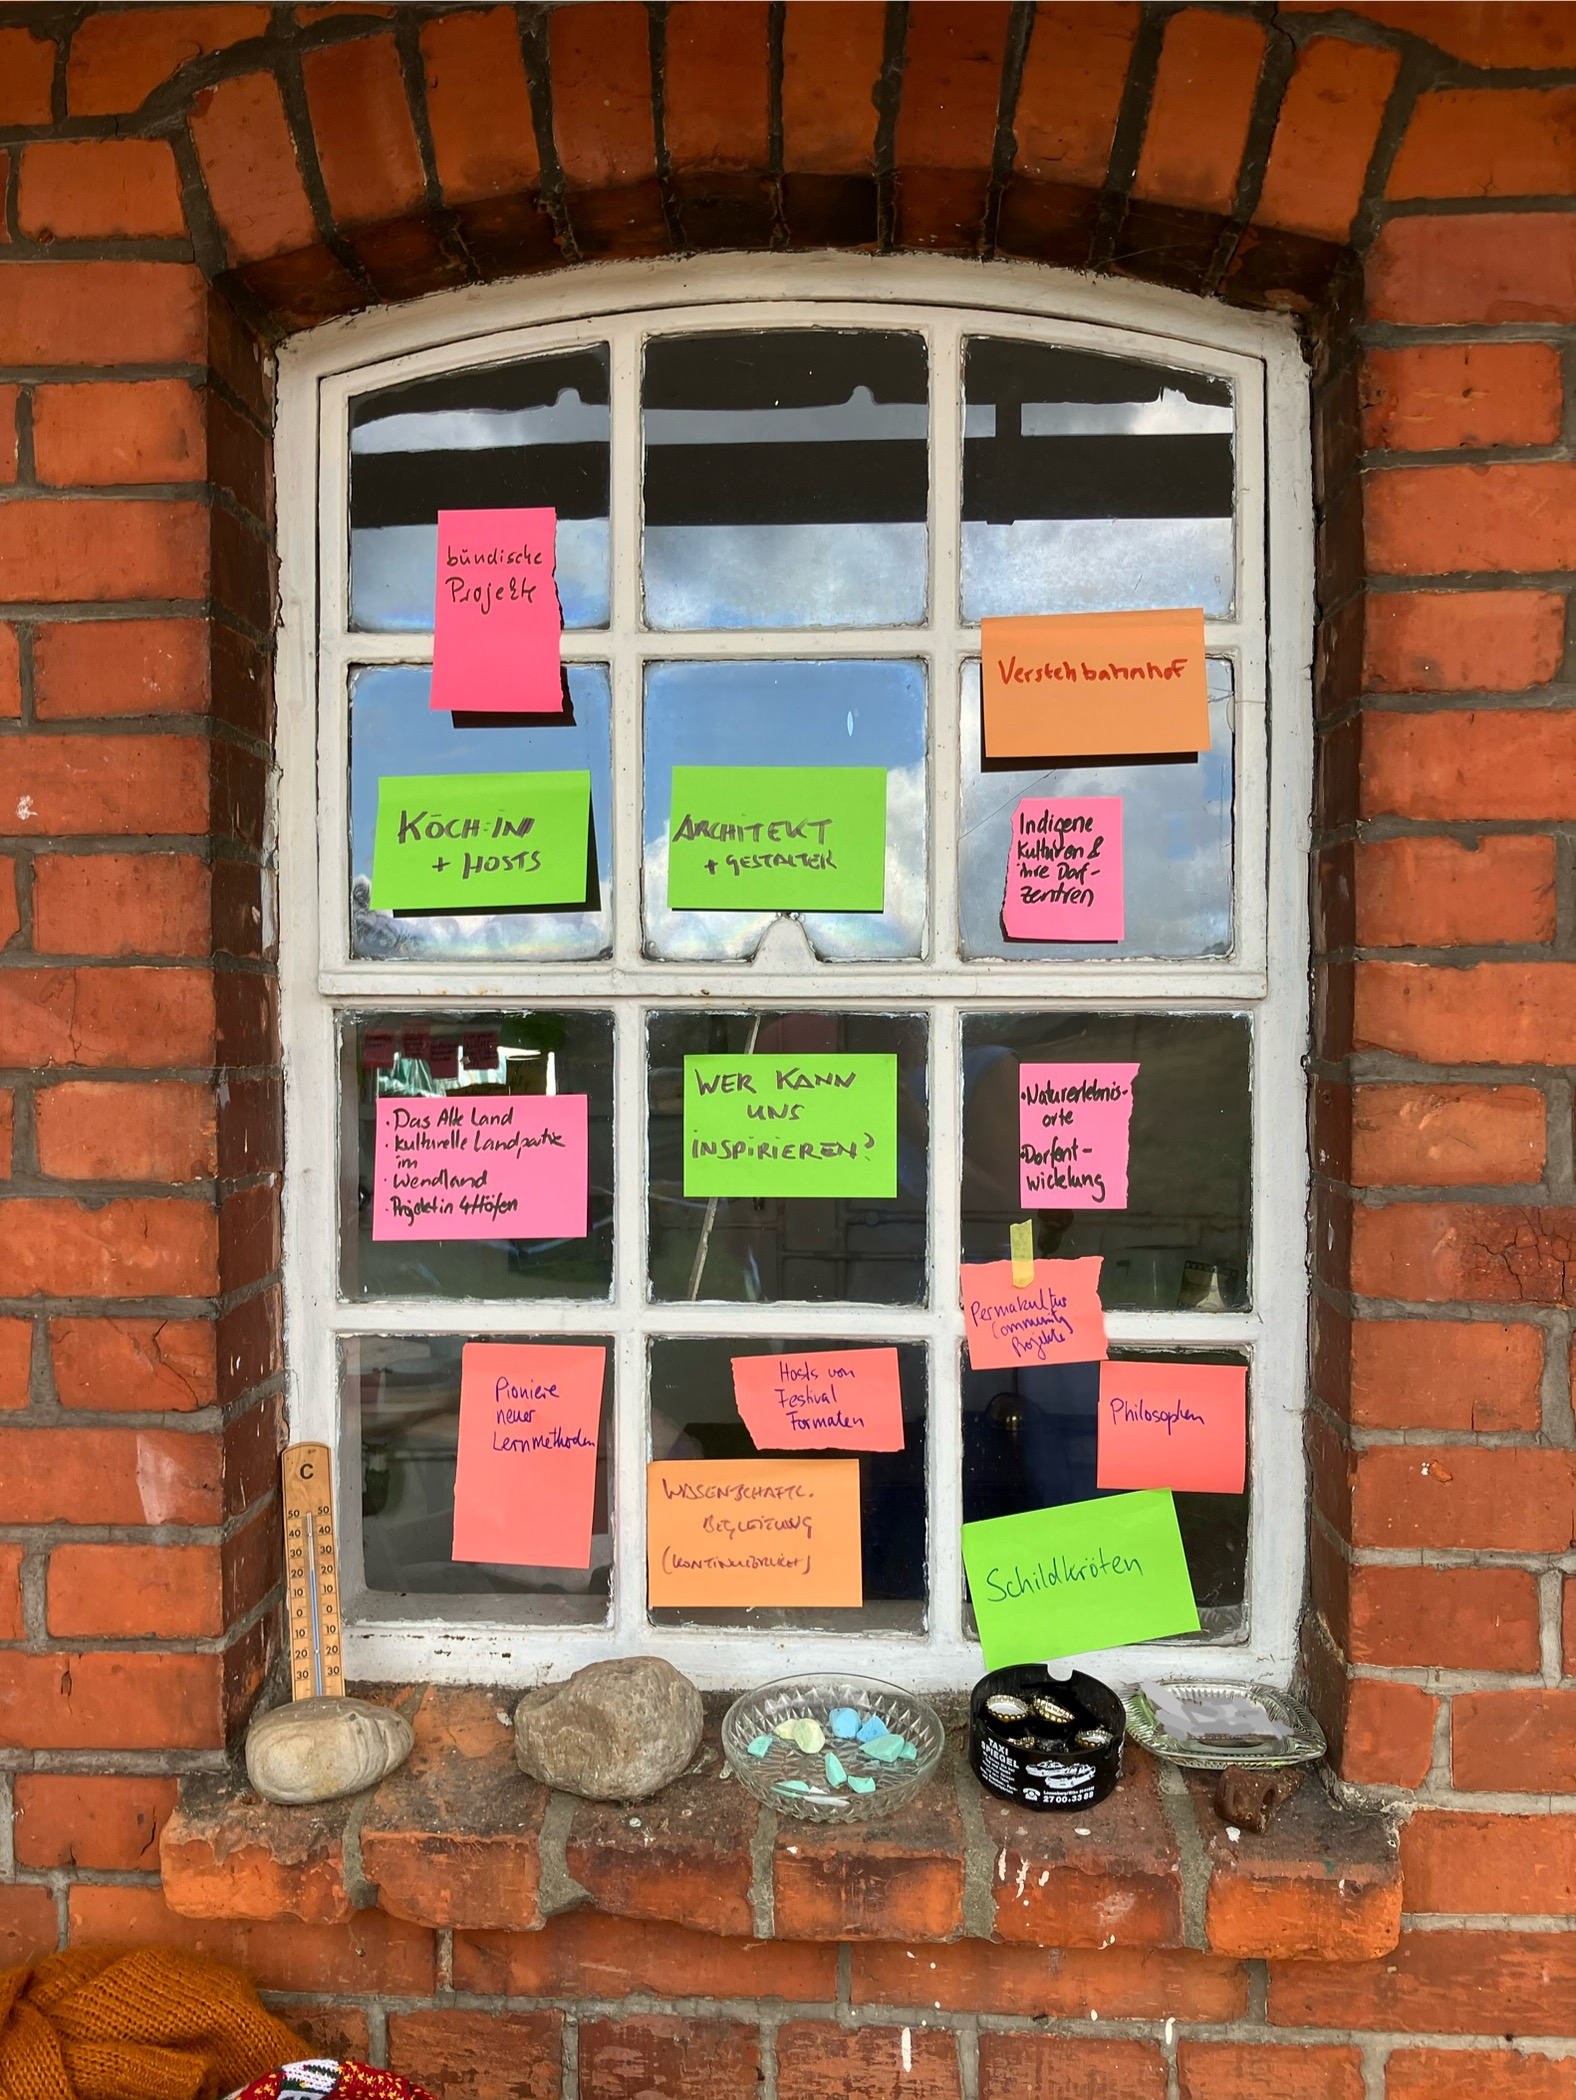 bündische
Projekte
Verstehbahnhof
KÖCH:IN
+ HOSTS
ARCHITEKT
+ GESTALTER
Indigene
Kulturen &
ihre Dorf-
zentren
· Das Alte Land
· Kulturelle Landpartie
im
· Wendland
· Projekt in 4 Höfen
WER KANN
UNS
INSPIRIEREN?
· Naturerlebnis-
orte
· Dorfent-
wicklung
Permakultur
Community
Projekte
Pioniere
neuer
Lernmethoden
Hosts von
Festival
Formaten
Philosophen
WISSENSCHAFTL.
BEGLEITUNG
(KONTINUIERLICH)
Schildkröten
C
50 50
40 40
30 30
20 20
10 10
0 0
10 10
20 20
30 30
TAXI
SPIEGEL
27 00 + 33 88